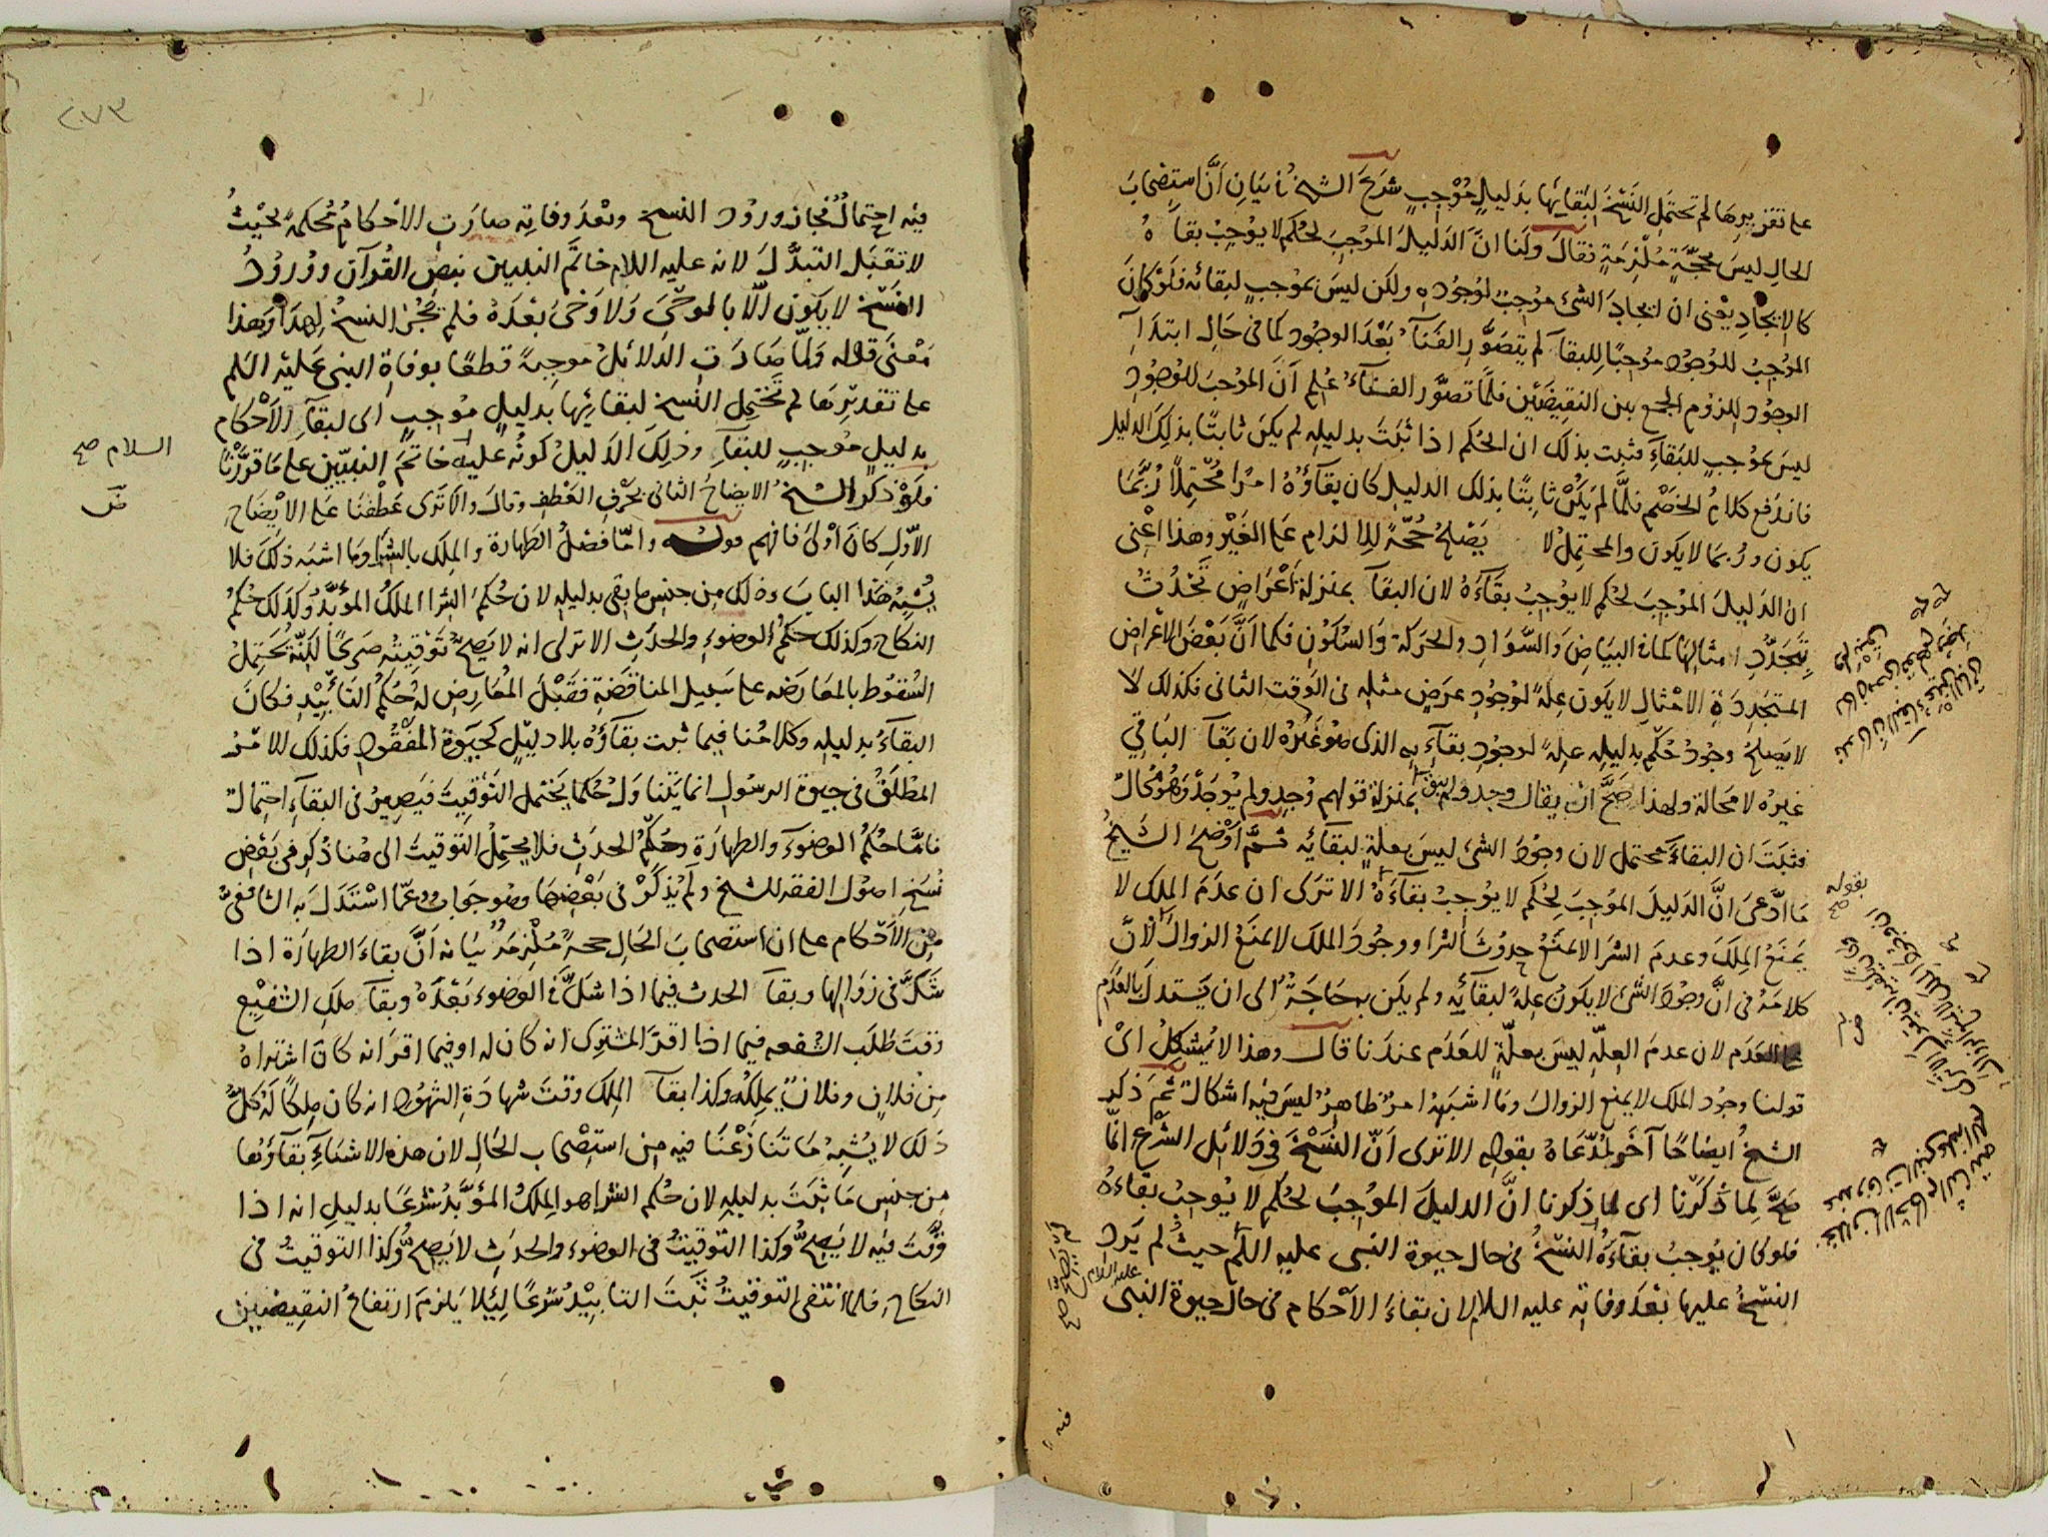 على تقريرها لم تحتمل النَّسْخَ لِبَقائِها بدَليلٍ مُوْجِبٍ شرَعَ الشيخُ في بَيَانِ اَنَّ استِصْحابَ
الحالِ ليسَ بحجّةٍ مُلْزِمَةٍ فقالَ ولَنا انَّ الدَليلَ الموْجِبَ لحُكمٍ لا يوْجِبُ بقآءَهُ
كالايجادِ يعْنى ان ايجادَ الشئِ مُوْجِبٌ لوُجُودِهٖ ولكن ليسَ بموْجبٍ لبقائه فلَوْ كانَ
الموْجِبُ للوُجودِ مُوْجبًا للبقآءِ لم يتصَوَّرِ الفَنَآءُ بَعْدَ الوجود كما فى حَالِ ابتدَآءِ
الوجُود للزوم الجمع بين النقيضَيْنِ فلمَّا تصوّر الفنآءُ عُلِمَ اَنَّ الموْجبَ للوُجُودِ
ليسَ بموْجبٍ للبَقاءِ فثبت بذلك ان الحُكم اذا ثبَتَ بدليلِهٖ لم يكن ثابتًا بذلكَ الدليلِ
فاندفع كلامُ الخصْمِ فلمَّا لم يَكُنْ ثابِتًا بذلك الدليلِ كان بقآؤُهُ امْرًا مُحْتمِلًا رُبَّمَا
يكون ورُبما لا يكون والمحتمِلُ لا يَصْلحُ حُجَّةً للالزام عَلى الغَيْرِ وهذا اَعْنى
ان الدَليلَ الموْجِبَ لحُكمٍ لا يوْجِبُ بقَآءَهُ لان البقآءَ بمنزلة اَعْرَاضٍ تَحْدُثُ
بتَجَدُّدِ امثالِهَا كما فى البَيَاضِ وَالسَّوَادِ والحرَكةِ وَالسُكُوْنِ فكما اَنَّ بَعْضَ الاعْراضِ
المتجَدِدَةِ الامْثالِ لا يكون عِلةً لوُجودِ عرَضٍ مثلِهٖ فى الوَقت الثانى فكذلك لا
لا يَصلحُ وجُودُ حُكمٍ بدليلِهٖ علةً لوجُودِ بقآءِهٖ الذى هُوَ غَيْرُهُ لان بَقآءَ البَاقِي
غيرُه لا محالة ولهذا صَحَّ ان يقال وجد ولم يبق بمنزلة قولهم وُجِدَ ولم يُوْجَدْ وَهُوَ مُحَالٌ
فثبَتَ ان البقاءَ محتمل لان وجُودَ الشئِ ليسَ بعلةٍ لبقآئِهٖ ثمَّ اَوْضحَ الشيخُ
مَا ادَّعىَ انَّ الدَليلَ الموْجِبَ لحُكمٍ لا يوْجِبُ بقآءَهُ الا ترَى ان عدَمَ الملكِ لا
يَمنَعُ المِلكَ وعدمَ الشرَا لا يمنَعُ حدُوثَ الشرَا ووجُودَ الملك لا يمنَعُ الزوالَ لانَّ
كلامَهُ فى انَّ وجُودَ الشئِ لا يكون علةً لبقآئِهٖ ولم يكن به حَاجَةٌ الى ان يَستدلَّ بالعَدَمِ
على العدَمِ لان عدمَ العِلّةِ ليسَ بعلّةٍ للعَدَمِ عندَنا قالَ وهذا لا يُشكِلُ اىْ
قولنا وجُود الملك لا يمنع الزوالَ ومَا اشبَهَهُ امرٌ ظاهِرٌ ليسَ فيْهِ اشكالٌ ثمَّ ذكر
الشيخُ ايضاحًا آخَرَ لمُدَّعَاهُ بقولِهٖ الا ترى اَنَّ النَسْخَ فى دَلائل الشرع انَّما
صَحَّ لِما ذكَرْنا اى لما ذكرنا انَّ الدليلَ الموْجِبَ لحُكمٍ لا يُوجبُ بقاءَهُ
فلو كان يُوجبُ بقآءَهُ النسْخُ فى حال حيوة النبى عليه السلم حيثُ لم يَرِدِ
النسْخُ عليها بَعْدَ وفاتِهٖ عليه السلام لان بقاءَ الاَحْكام فى حال حيوة النبى
عليه السلام
لم يَصِحَّ صح
فيه
بقوله صح
٢٧٣
فيْه احتمالٌ فجازَ ورُوْد النسخ وبَعْدَ وفاتِهٖ صارَتِ الاَحْكامُ مُحْكمةً بحَيْثُ
لا تقبَلُ التبدُّلَ لانه عليه السلام خاتَمُ النبيين بنصِ القُرآن ووُرُودُ
النَسْخِ لا يكون الّا بالوَحْيِ وَلا وَحْىَ بعْدَهُ فلم يَجُزِ النسخُ لِهذا وهذا
مَعْنَى قوله وَلمّا صَارَتِ الدَلائلُ موجِبةً قطعًا بوفاةِ النبى عَليْهِ السَلم
على تقديرِها لم تَحْتَمِلِ النسخ لبقائِها بدليلٍ مُوْجبٍ اى لبقآءِ الاَحْكام
بدليلٍ مُوْجِبٍ للبقآءِ وذلِكَ الدَليلُ كونُه عليه خاتَمَ النبيّين على مَا قرَّرْنا
فلَوْ ذكر الشيخُ الايضاحَ الثانى بحَرْفِ العَطفِ وقالَ والا تَرَى عَطْفًا عَلى الاِيْضاحِ
الاَوّلِ كانَ اَوْلىٰ فافهم قوله وامَّا فَضْلُ الطهارة والملك بالشرا وما اشبَه ذلكَ فلا
يُشبِهُ هَذا البابَ وذلك مِن جِنسِ ما بقى بدليلِهٖ لان حُكمَ الشرا الملكُ المؤَبَّدُ وكذلكَ حُكمُ
النكاحِ وكذلك حكمُ الوضوءِ والحدَثِ الا ترى انه لا يَصِحُّ تَوْقِيتُه صَرِيحًا لكِنّهُ يَحْتمِلُ
السُقوُط بالمعَارضه على سَبيل المناقَضَةِ فقَبْلَ المُعَارِضِ لهُ حُكمُ التأبِيْدِ فكانَ
البقآءُ بدليلِهٖ وكلامُنا فيما ثبت بقآؤُه بلا دليْلٍ كحَيٰوةِ المَفْقُودِ فكذلك للامْر
المطْلَقُ فى حيوة الرسُولِ انما يَتَنَاوَلُ حُكمًا يَحْتمل التَوْقِيتَ فيَصِيرُ فى البقآءِ احتمالٌ
فامَّا حُكمُ الوضُوءِ والطهارَة وحُكمُ الحدَثِ فلا يحتمِلُ التوقيتَ الى هُنا ذُكر فى بَعْضِ
نُسَخِ اصُول الفقهِ للشيخ ولم يُذكَرْ فى بَعْضِها وهُو جَوابٌ عمّا اسْتَدَلَّ بهِ الشافعىُّ
مِن الاَحْكام على ان استصْحابَ الحَالِ حجةٌ مُلزِمَةٌ بيَانه اَنَّ بقاءَ الطهارَة اذا
شكَّ فى زوَالِها وبقآءَ الحدث فيما اذا شكَّ فى الوَضوء بَعْدَهُ وبقآءَ ملكِ الشفِيْعِ
وَقتَ طَلَبِ الشفعه فيما اذا اقرَّ المشترِى انه كان له او فيما اقرَّ انه كانَ اشتراهُ
مِنْ فلانٍ وفلانٌ يملِكُه وكذا بقآءَ المِلك وَقْتَ شهادَةِ الشهُودِ انه كان مِلكًا لَهُ كلُّ
ذَلكَ لا يُشبِهُ مَا تنازَعْنَا فيه مِن استِصْحابِ الحَالِ لان هذه الاشيَآءِ بقآؤُها
مِن جِنسِ مَا ثبَتَ بدليلِهٖ لان حُكم الشرا هو المِلكُ المؤَبَّدُ شرْعًا بدليلِ انه اذا
وقَّتَ فيْه لا يَصِحُّ وكذا التَوقِيتُ فى الوضوء والحدَثِ لا يَصِحُّ وكذا التَوقِيتُ فى
النكاحِ فلما انْتفى التَوقِيتُ ثبَتَ التابِيْدُ شرْعًا لِئلا يَلزَمَ ارتفاعُ النقِيضَينِ
السلام صح